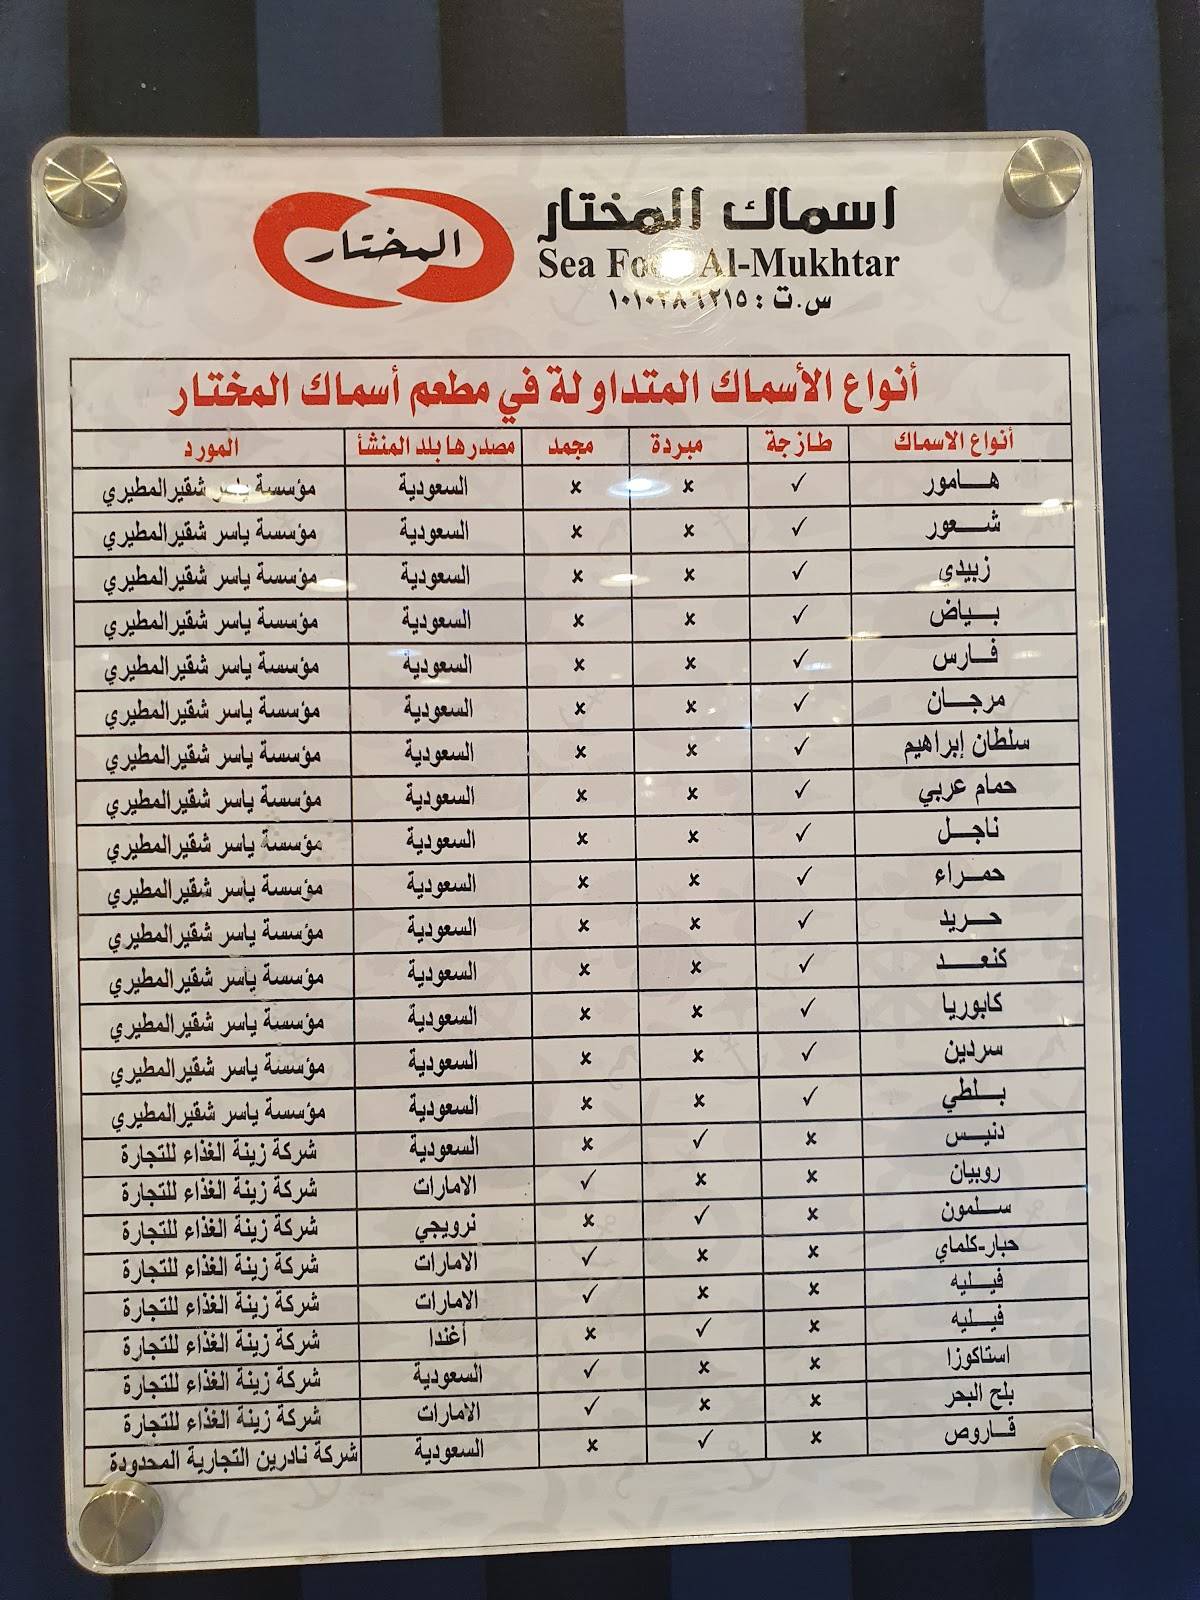 المختار
اسماك المختار
Sea Food Al-Mukhtar
س.ت : ١٠١٠٢٨٦٢١٥
أنواع الأسماك المتداولة في مطعم أسماك المختار
أنواع الاسماك طازجة مبردة مجمد مصدرها بلد المنشأ المورد
هـامور ✓ ✗ ✗ السعودية مؤسسة ياسر شقير المطيري
شـعور ✓ ✗ ✗ السعودية مؤسسة ياسر شقير المطيري
زبيدي ✓ ✗ ✗ السعودية مؤسسة ياسر شقير المطيري
بـياض ✓ ✗ ✗ السعودية مؤسسة ياسر شقير المطيري
فـارس ✓ ✗ ✗ السعودية مؤسسة ياسر شقير المطيري
مرجـان ✓ ✗ ✗ السعودية مؤسسة ياسر شقير المطيري
سلطان إبراهيم ✓ ✗ ✗ السعودية مؤسسة ياسر شقير المطيري
حمام عربي ✓ ✗ ✗ السعودية مؤسسة ياسر شقير المطيري
ناجـل ✓ ✗ ✗ السعودية مؤسسة ياسر شقير المطيري
حمـراء ✓ ✗ ✗ السعودية مؤسسة ياسر شقير المطيري
حـريد ✓ ✗ ✗ السعودية مؤسسة ياسر شقير المطيري
كنعـد ✓ ✗ ✗ السعودية مؤسسة ياسر شقير المطيري
كابوريا ✓ ✗ ✗ السعودية مؤسسة ياسر شقير المطيري
سردين ✓ ✗ ✗ السعودية مؤسسة ياسر شقير المطيري
بـلطي ✓ ✗ ✗ السعودية مؤسسة ياسر شقير المطيري
دنيـس ✗ ✓ ✗ السعودية شركة زينة الغذاء للتجارة
روبيان ✗ ✗ ✓ الامارات شركة زينة الغذاء للتجارة
سـلمون ✗ ✓ ✗ نرويجي شركة زينة الغذاء للتجارة
حبار-كلماي ✗ ✗ ✓ الامارات شركة زينة الغذاء للتجارة
فيـليه ✗ ✗ ✓ الامارات شركة زينة الغذاء للتجارة
فيـليه ✗ ✓ ✗ أغندا شركة زينة الغذاء للتجارة
استاكوزا ✗ ✗ ✓ السعودية شركة زينة الغذاء للتجارة
بلح البحر ✗ ✗ ✓ الامارات شركة زينة الغذاء للتجارة
قـاروص ✗ ✓ ✗ السعودية شركة نادرين التجارية المحدودة